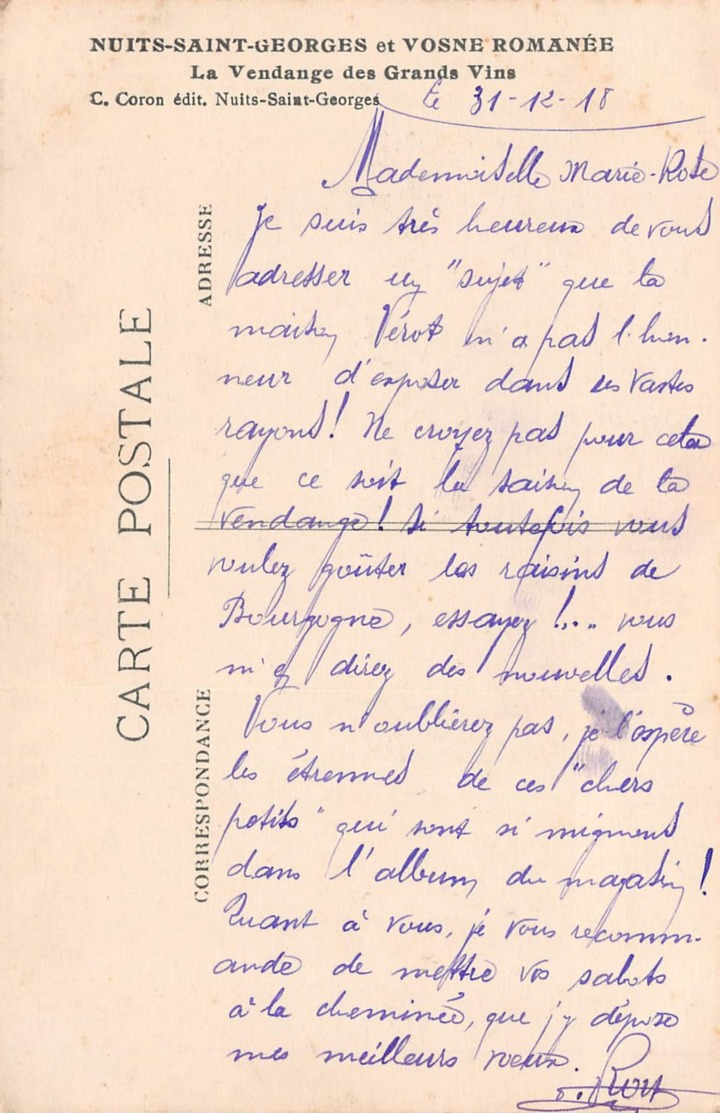 NUITS-SAINT-GEORGES et VOSNE ROMANÉE
La Vendange des Grands Vins
C. Coron édit. Nuits-Saint-Georges
Le 31-12-18
CARTE POSTALE
ADRESSE
CORRESPONDANCE
Mademoiselle Marie-Rose
Je suis très heureux de vous
adresser un "sujet" que la
maison Vérot n'a pas l'hon-
neur d'exposer dans ses vastes
rayons! Ne croyez pas pour cela
que ce soit la saison de la
vendange! Si toutefois vous
voulez goûter les raisins de
Bourgogne, essayez!... vous
m'en direz des nouvelles.
Vous n'oublierez pas, je l'espère
les étrennes de ces "chers
petits" qui sont si mignons
dans l'album du magasin!
Quant à vous, je vous recomm-
ande de mettre vos sabots
à la cheminée, que j'y dépose
mes meilleurs voeux.